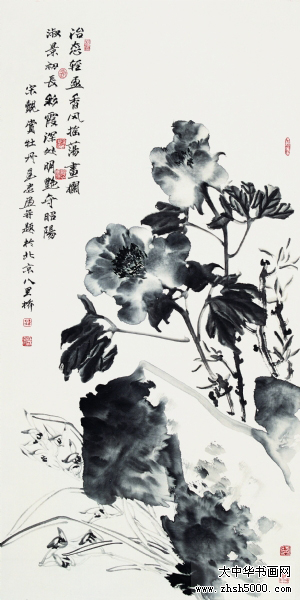 冶态轻盈香风摇荡画栏
淑景初长彩霞深映明艳夺昭阳
宋觐赏牡丹
题於北京八里桥
大中华书画网
www.zhsh5000.com